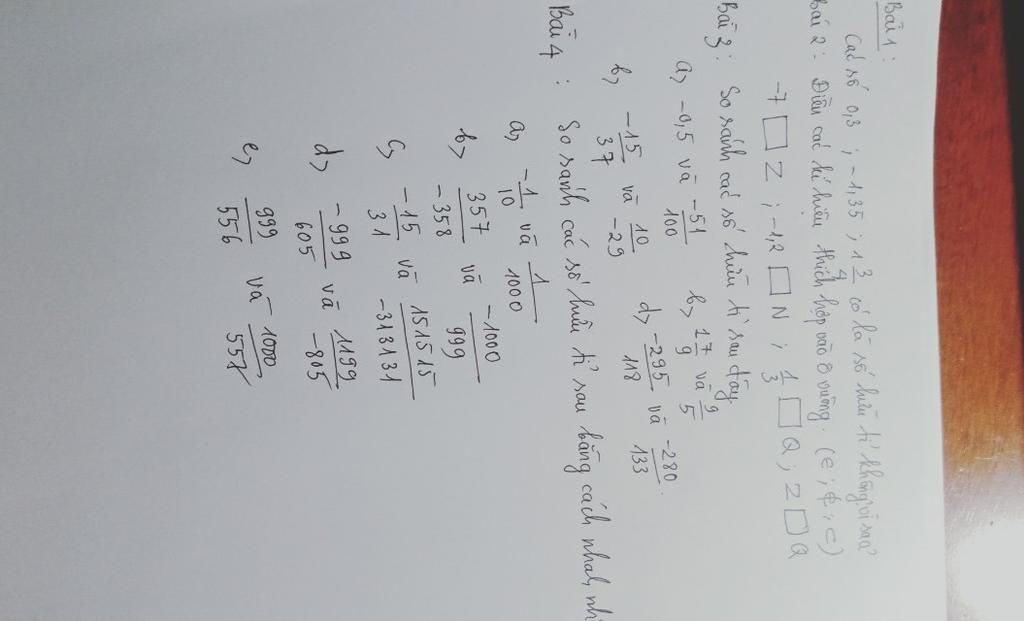 Bài 1 :
Các số 0,3 ; -1,35 ; 1 3/4 có là số hữu tỉ không, vì sao?
Bài 2 : Điền các kí hiệu thích hợp vào ô vuông. (∈ ; ∉ ; ⊂)
-7 □ Z ; -1,2 □ N ; 1/3 □ Q ; Z □ Q
Bài 3 : So sánh các số hữu tỉ sau đây
a, -0,5 và -51/100 b, 17/9 và 9/5
b, -15/37 và 10/-29 d, -295/118 và -280/133.
Bài 4 : So sánh các số hữu tỉ sau bằng cách nhanh
a, -1/10 và 1/1000
b, 357/-358 và -1000/999
c, -15/31 và 151515/-313131
d, -999/605 và 1199/-805
e, 999/556 và 1000/557